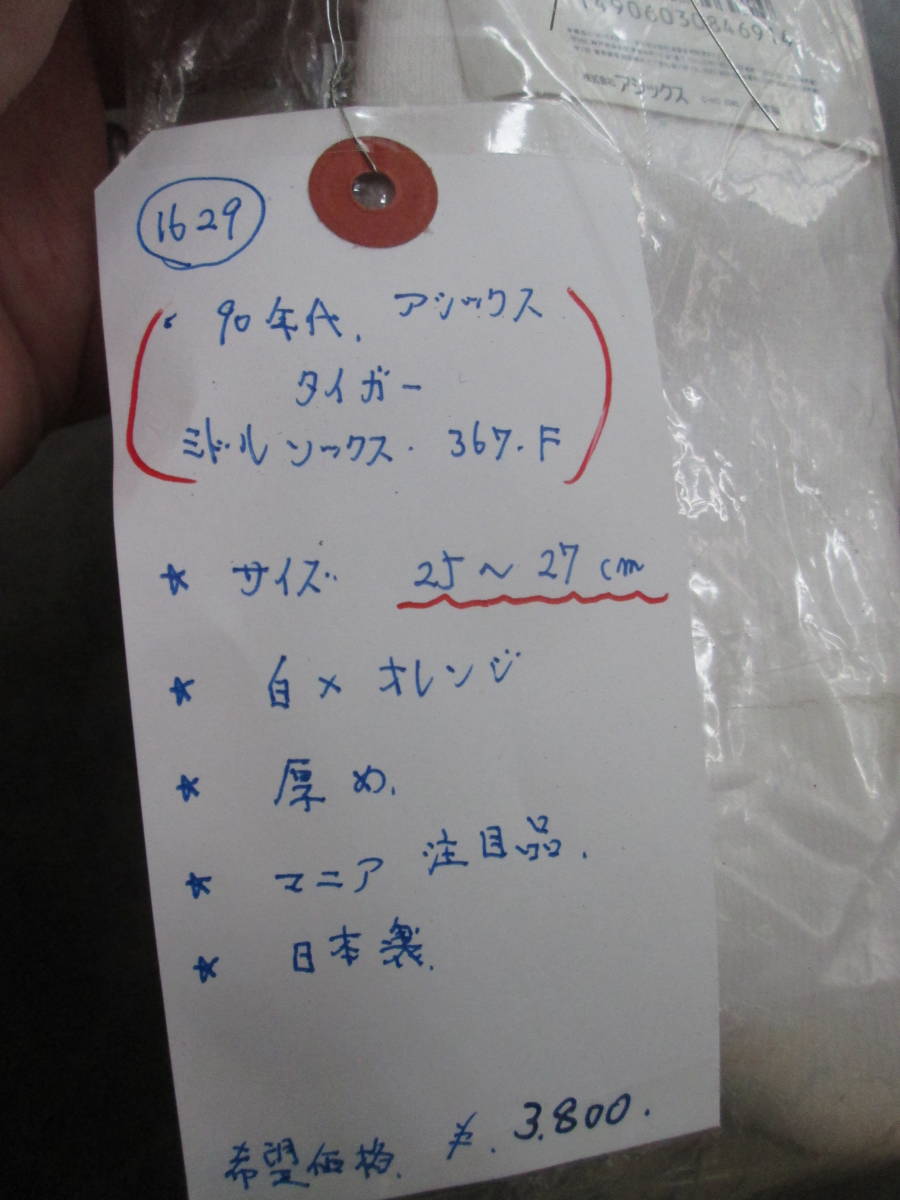 株式会社アシックス
1629
・90年代. アシックス
タイガー
ミドルソックス. 367.F
★ サイズ. 25～27cm
★ 白×オレンジ
★ 厚め.
★ マニア 注目品.
★ 日本製.
希望価格. ¥. 3.800.